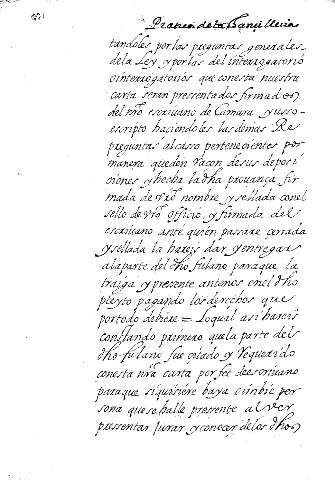 Pratica de la Chancilleria
tandoles por las preguntas generales
de la Ley, y por las del interrogatorio
e interrogatorios que con esta nuestra
carta seran pressentados firmados
del nro escriuano de Camara yusso
escripto haciendoles las demas Re
preguntas al caso pertenecientes por
manera que den Racon de sus deposi
ciones, y hecha la dha prouança fir
mada de vro nombre, y sellada con el
sello de vro officio, y firmada del
escriuano ante quien passare cerrada
y sellada la hareis dar, y entregar
a la parte del dho fulano para que la
traiga y presente ante nos en el dho
pleyto pagando los derechos que
por todo debiere = Lo qual assi hareis
constando primero que la parte del
dho fulano fue citado y requerido
con esta nra carta por fee de escriuano
para que si quisiere baya o imbie per
sona que se halle presente al ver
pressentar jurar, y conocer de los dhos